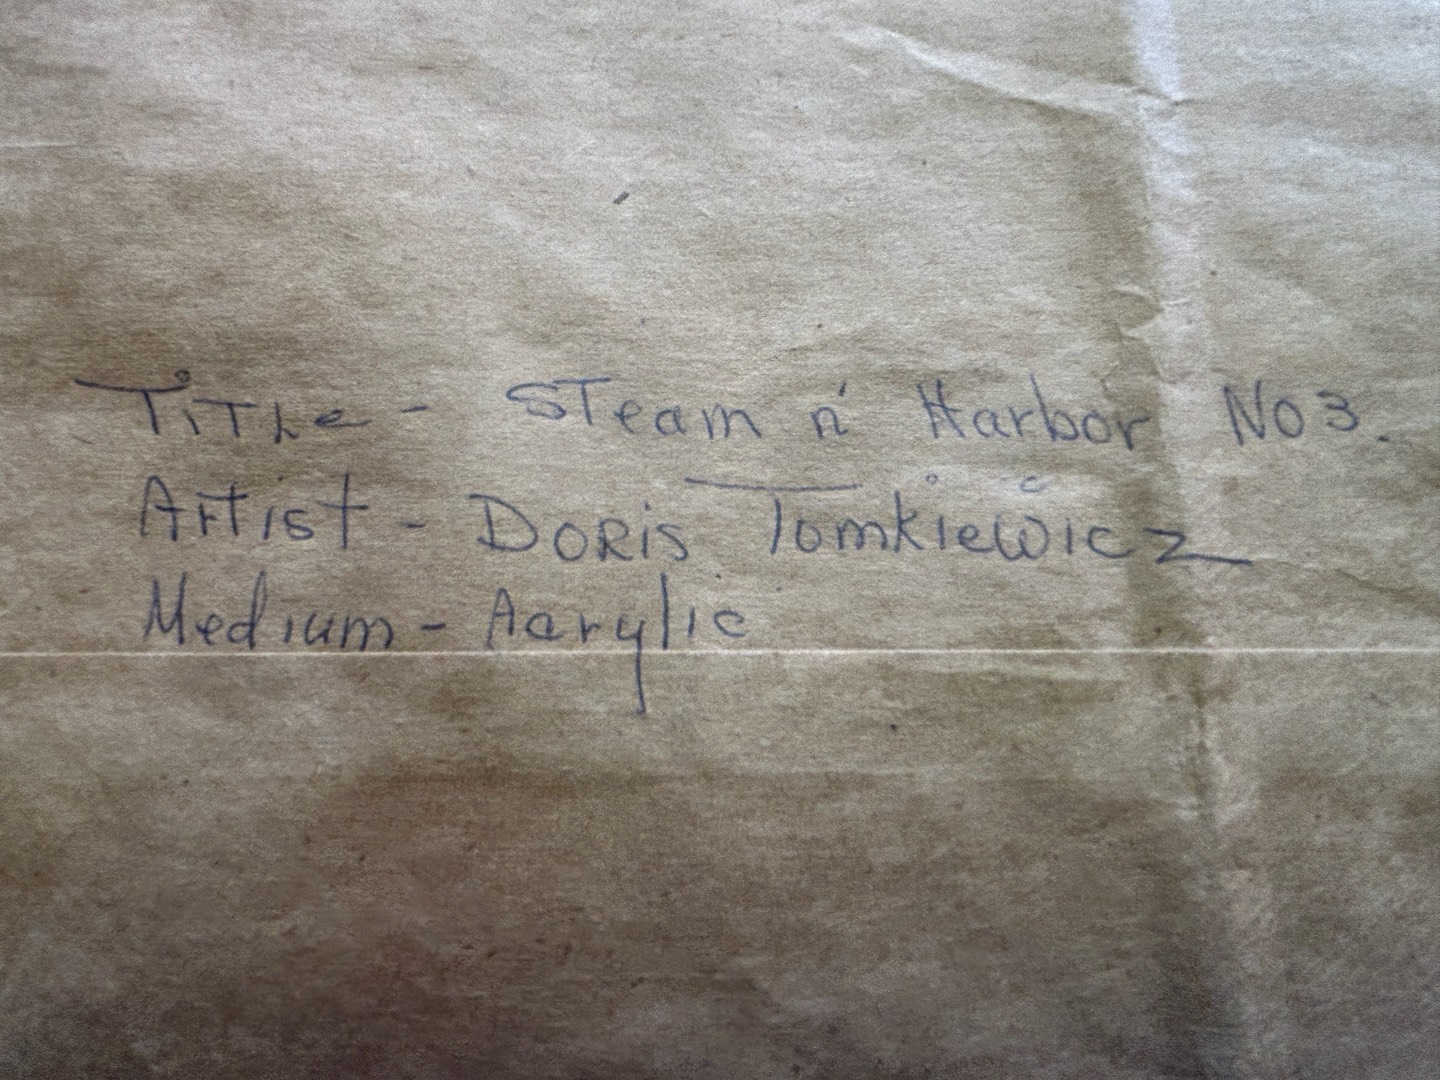 Title - Steam n' Harbor No 3.
Artist - Doris Tomkiewicz
Medium - Acrylic